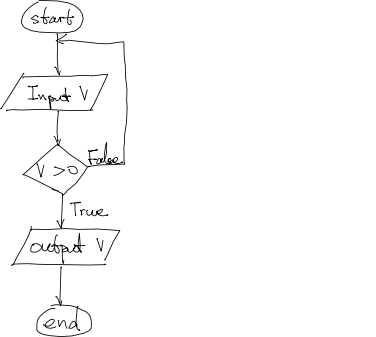 start
Input V
V > 0
False
True
output V
end